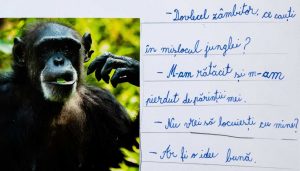 - Dovlecel zâmbitor, ce cauți
în mijlocul junglei?
- M-am rătăcit și m-am
pierdut de părinții mei.
- Nu vrei să locuiești cu mine?
- Ar fi o idee bună.